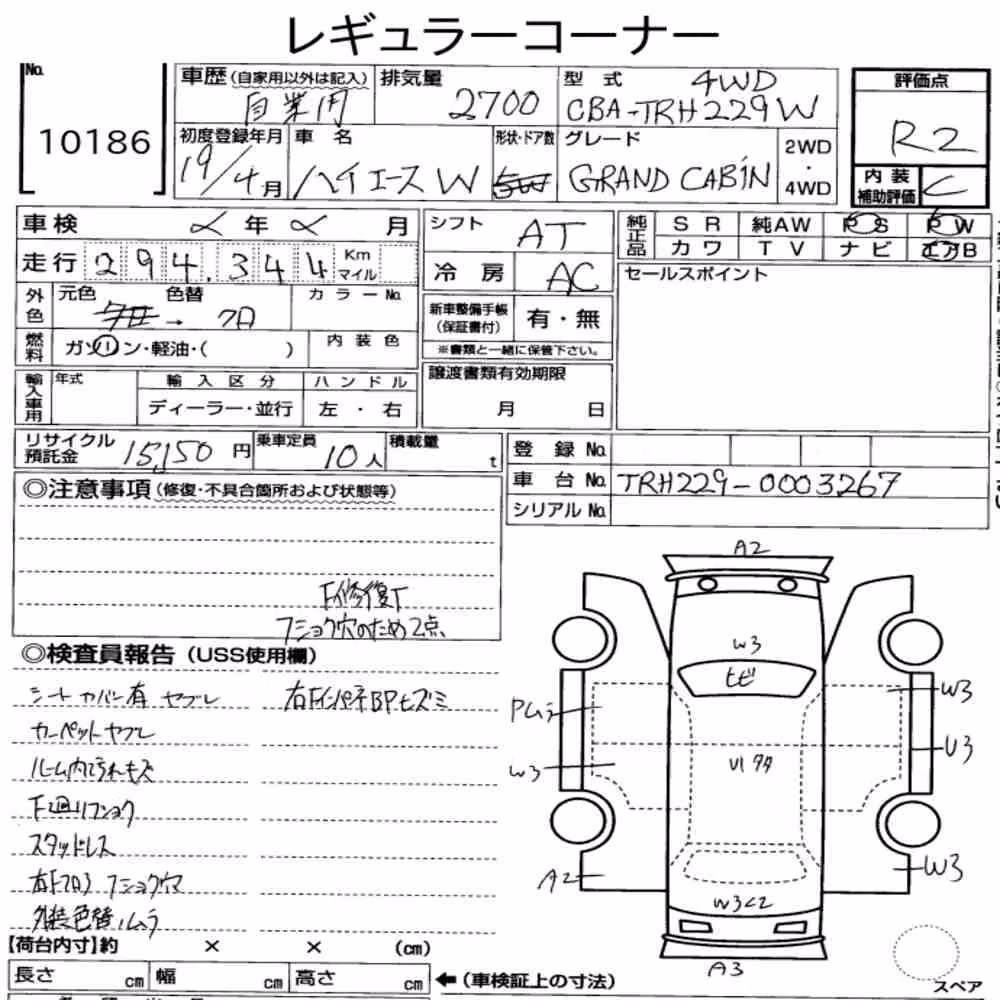 レギュラーコーナー
No. 10186
車歴 (自家用以外は記入) 自業用
排気量 2700
型式 4WD CBA-TRH229W
評価点 R2
初度登録年月 19/4月
車名 ハイエース W
形状・ドア数 5W
グレード GRAND CABIN
2WD・4WD
内装補助評価 C
車検 年 月
シフト AT
純正品 SR 純AW PS PW
カワ TV ナビ エアB
走行 294,344 Km マイル
冷房 AC
セールスポイント
外色 元色 色替 カラーNo.
紺 → 白
新車整備手帳 (保証書付) 有・無
※書類と一緒に保管下さい。
燃料 ガソリン・軽油・( )
内装色
輸入車用 年式 輸入区分 ハンドル
ディーラー・並行 左・右
譲渡書類有効期限
月 日
リサイクル預託金 15,150円
乗車定員 10人
積載量 t
登録No.
車台No. TRH229-0003267
シリアルNo.
◎注意事項 (修復・不具合箇所および状態等)
F修復
フショク穴のため2点
◎検査員報告 (USS使用欄)
シートカバー有 ヤブレ
右Fインパネ BPヒズミ
カーペットヤブレ
ルーム内 キズ
F廻りフショク
スタッドレス
右Fフロア フショク穴
外装色替ムラ
A2
W3
ヒビ
Pムラ
W3
U3
W3
U1 タタ
A2
W3
W3 C2
A3
スペア
【荷台内寸】約 × × (cm)
長さ cm 幅 cm 高さ cm ←(車検証上の寸法)